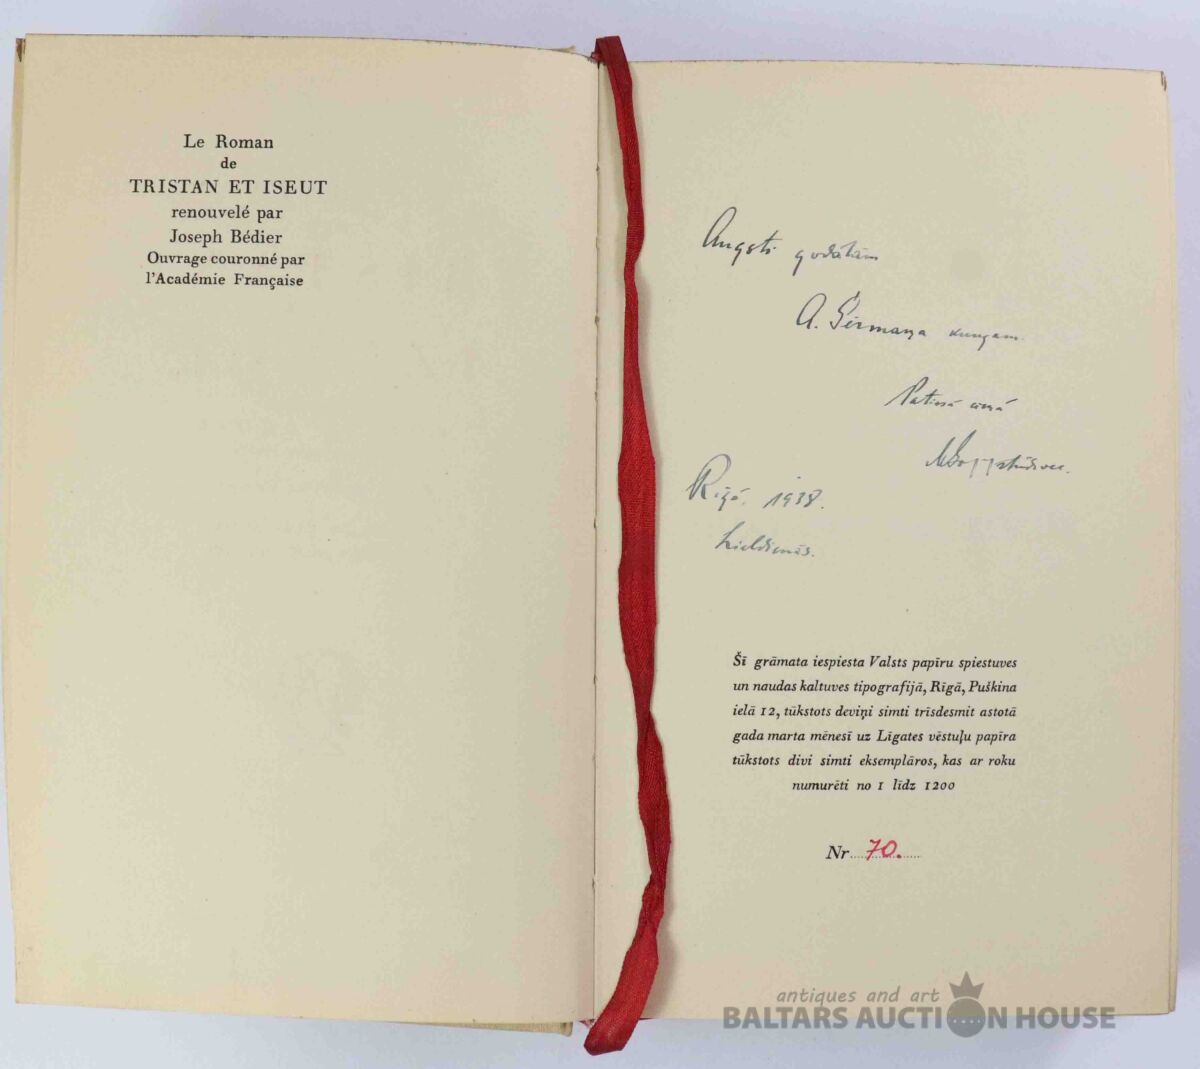 Le Roman
de
TRISTAN ET ISEUT
renouvelé par
Joseph Bédier
Ouvrage couronné par
l'Académie Française
Augsti godātām
A. Ģērmaņa kungam.
Patiesā cieņā
Rīgā. 1938.
Lieldienās.
Šī grāmata iespiesta Valsts papīru spiestuves
un naudas kaltuves tipografijā, Rīgā, Puškina
ielā 12, tūkstots deviņi simti trīsdesmit astotā
gada marta mēnesī uz Līgates vēstuļu papīra
tūkstots divi simti eksemplāros, kas ar roku
numurēti no 1 līdz 1200
Nr 70.
antiques and art
BALTARS AUCTION HOUSE